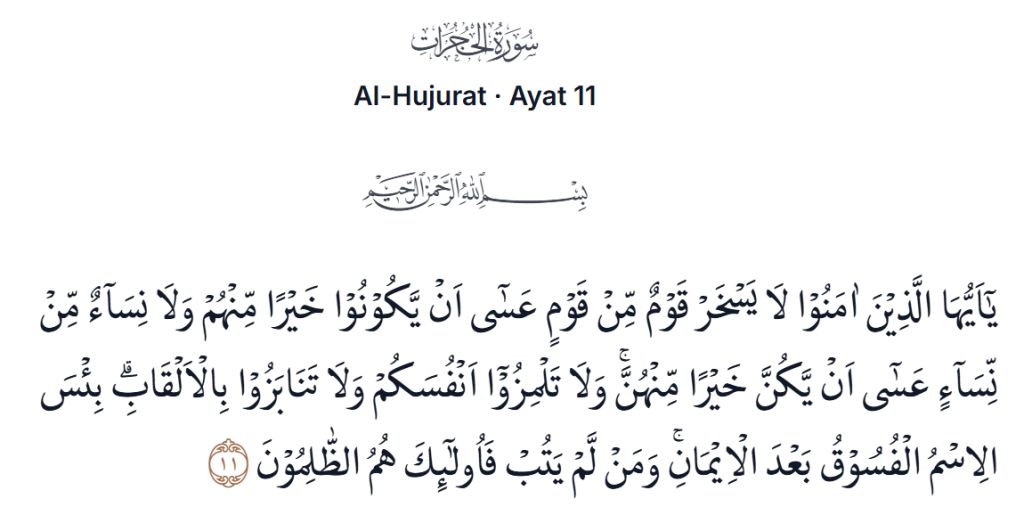 سُورَةُ الحُجُرَاتِ
Al-Hujurat · Ayat 11
بِسْمِ اللّٰهِ الرَّحْمٰنِ الرَّحِيْمِ
يٰٓاَيُّهَا الَّذِيْنَ اٰمَنُوْا لَا يَسْخَرْ قَوْمٌ مِّنْ قَوْمٍ عَسٰٓى اَنْ يَّكُوْنُوْا خَيْرًا مِّنْهُمْ وَلَا نِسَاۤءٌ مِّنْ
نِّسَاۤءٍ عَسٰٓى اَنْ يَّكُنَّ خَيْرًا مِّنْهُنَّۚ وَلَا تَلْمِزُوْٓا اَنْفُسَكُمْ وَلَا تَنَابَزُوْا بِالْاَلْقَابِۗ بِئْسَ
الِاسْمُ الْفُسُوْقُ بَعْدَ الْاِيْمَانِۚ وَمَنْ لَّمْ يَتُبْ فَاُولٰۤىِٕكَ هُمُ الظّٰلِمُوْنَ ١١